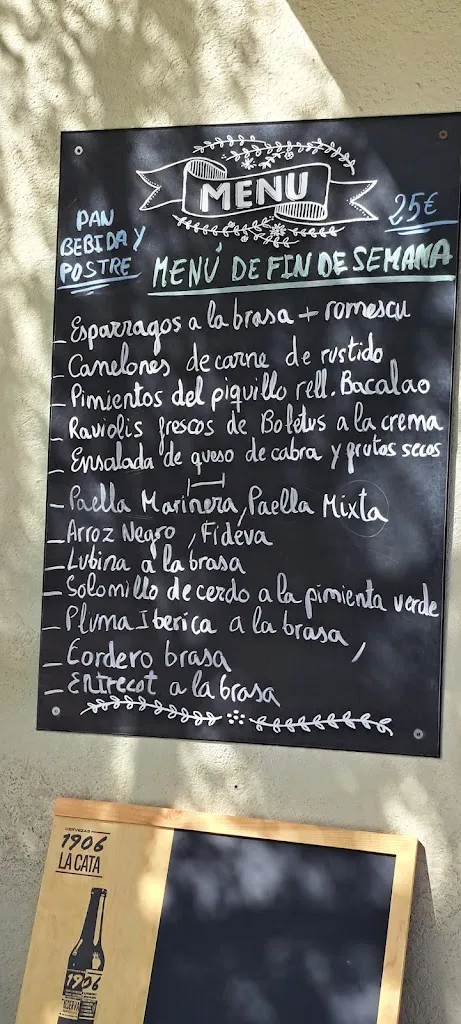 MENU
25€
PAN
BEBIDA Y
POSTRE
MENÚ DE FIN DE SEMANA
- Esparragos a la brasa + romescu
- Canelones de carne de rustido
- Pimientos del piquillo rell. Bacalao
- Raviolis frescos de Boletus a la crema
- Ensalada de queso de cabra y frutos secos
- Paella Marinera, Paella Mixta
- Arroz Negro, Fideva
- Lubina a la brasa
- Solomillo de cerdo a la pimienta verde
- Pluma Iberica a la brasa,
- Cordero brasa
- Entrecot a la brasa
CERVEZAS
1906
LA CATA
1906